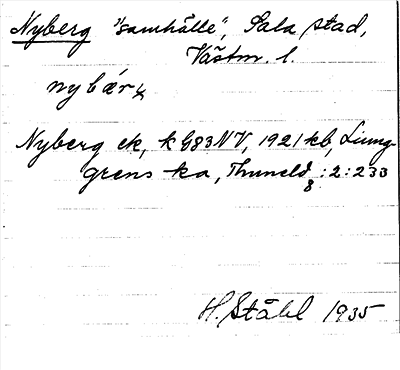 Nyberg "samhälle", Sala stad,
Västm. l.
nybär
Nyberg ek, k G83NV, 1921 kb, Ljung-
grens ka, Thuneld 8:2:233
H. Ståhl 1935